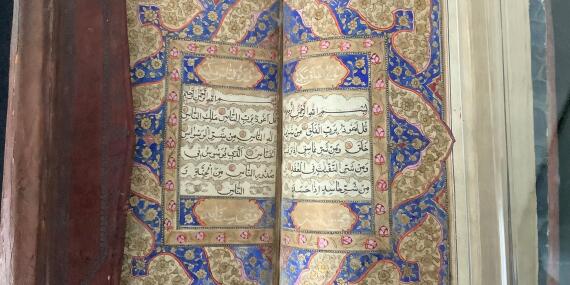 بسم الله الرحمن الرحيم
قل اعوذ برب الفلق من شر ما
خلق ومن شر غاسق اذا
ومن شر النفاثات في العقد
ومن شر حاسد اذا حسد
بسم الله الرحمن الرحيم
قل اعوذ برب الناس ملك الناس
اله الناس من شر الوسواس
الخناس الذي يوسوس في
صدور الناس من الجنة و
الناس